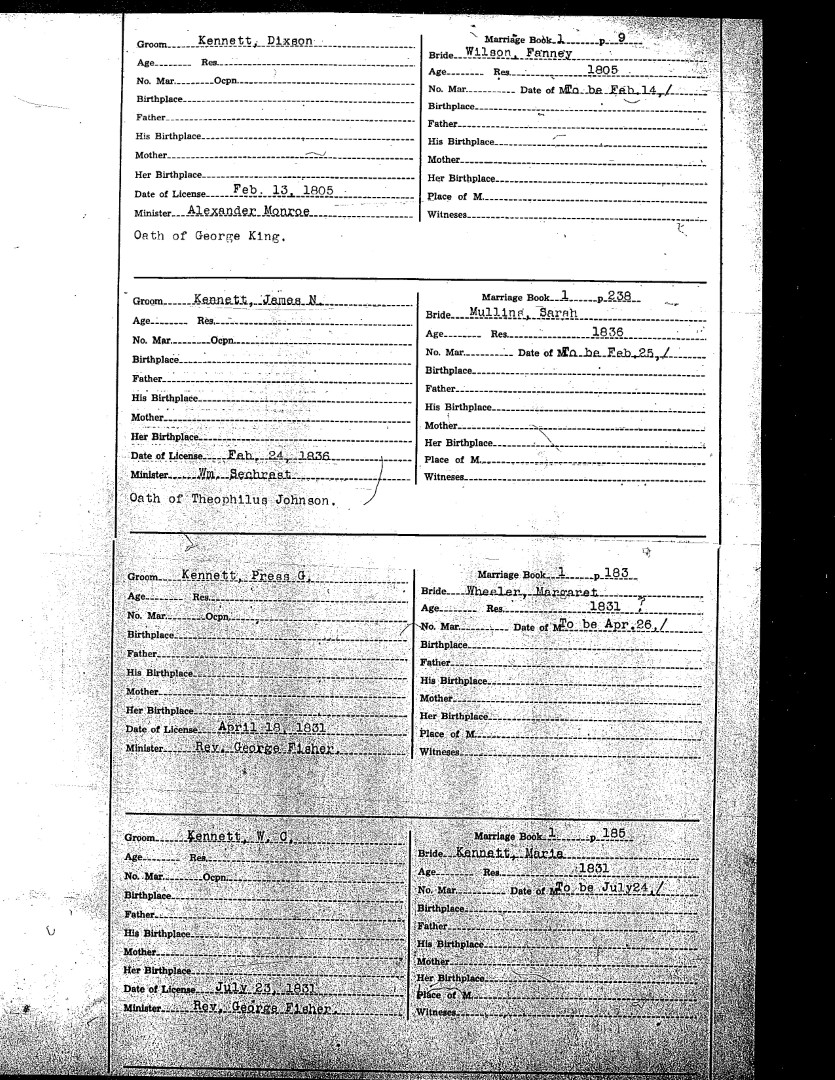 Groom Kennett, Dixson
Age Res.
No. Mar. Ocpn.
Birthplace
Father
His Birthplace
Mother
Her Birthplace
Date of License Feb. 13, 1805
Minister Alexander Monroe
Oath of George King.
Marriage Book 1 p. 9
Bride Wilson, Fanney
Age Res. 1805
No. Mar. Date of M. To be Feb.14,/
Birthplace
Father
His Birthplace
Mother
Her Birthplace
Place of M.
Witneses
Groom Kennett, James N.
Age Res.
No. Mar. Ocpn.
Birthplace
Father
His Birthplace
Mother
Her Birthplace
Date of License Feb. 24, 1836
Minister Wm. Sechrest
Oath of Theophilus Johnson.
Marriage Book 1 p. 238
Bride Mullins, Sarah
Age Res. 1836
No. Mar. Date of M. To be Feb.25,/
Birthplace
Father
His Birthplace
Mother
Her Birthplace
Place of M.
Witneses
Groom Kennett, Press G.
Age Res.
No. Mar. Ocpn.
Birthplace
Father
His Birthplace
Mother
Her Birthplace
Date of License April 18, 1831
Minister Rev. George Fisher.
Marriage Book 1 p. 183
Bride Wheeler, Margaret
Age Res. 1831 ?
No. Mar. Date of M. To be Apr.26,/
Birthplace
Father
His Birthplace
Mother
Her Birthplace
Place of M.
Witneses
Groom Kennett, W. C.
Age Res.
No. Mar. Ocpn.
Birthplace
Father
His Birthplace
Mother
Her Birthplace
Date of License July 23, 1831
Minister Rev. George Fisher.
Marriage Book 1 p. 185
Bride Kennett, Maria
Age Res. 1831
No. Mar. Date of M. To be July24,/
Birthplace
Father
His Birthplace
Mother
Her Birthplace
Place of M.
Witneses